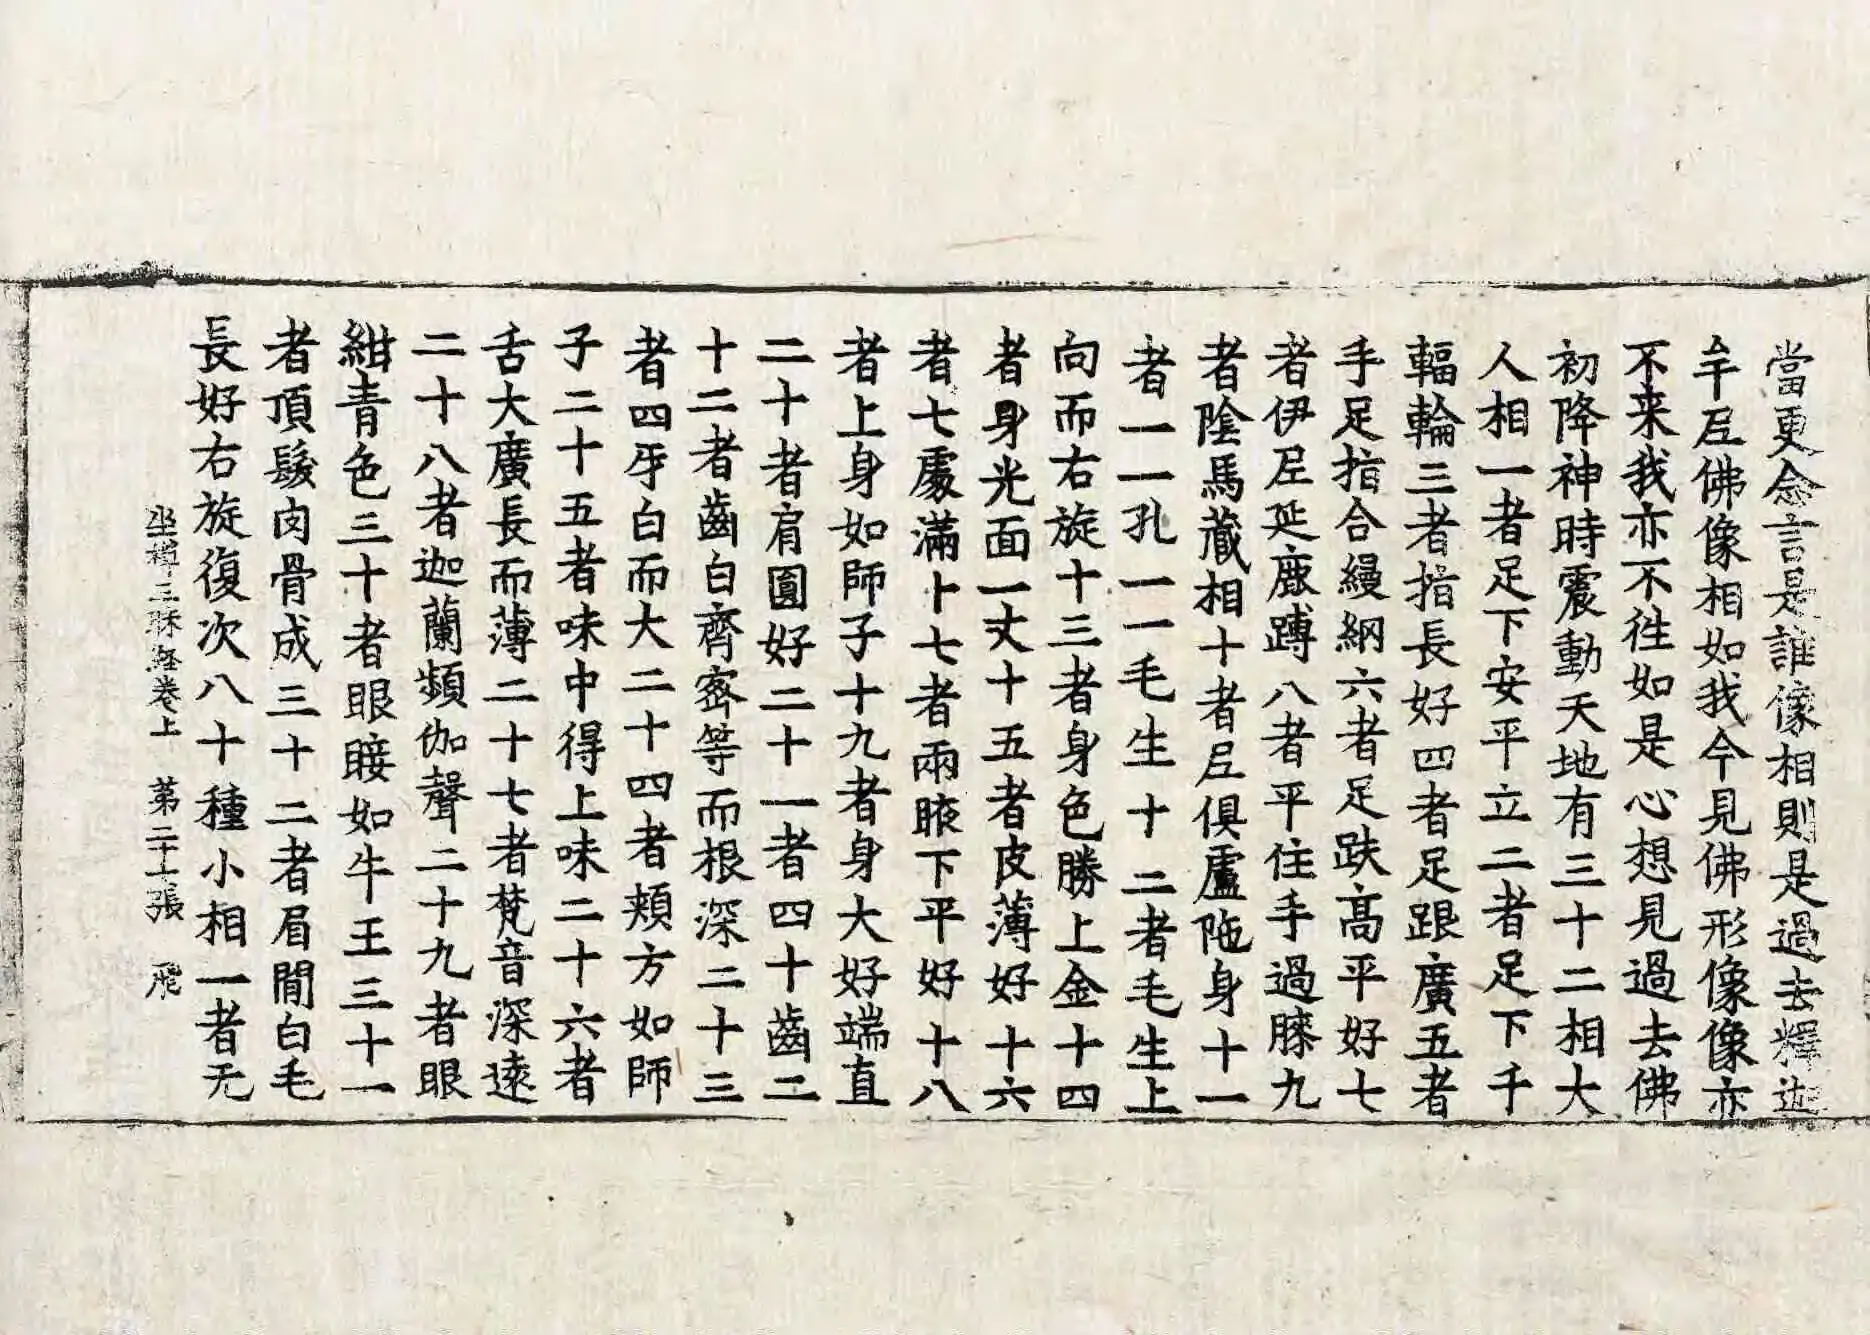 當更念言是誰像相則是過去釋迦
牟尼佛像相如我今見佛形像像亦
不来我亦不往如是心想見過去佛
初降神時震動天地有三十二相大
人相一者足下安平立二者足下千
輻輪三者指長好四者足跟廣五者
手足指合縵網六者足趺高平好七
者伊尼延鹿蹲八者平住手過膝九
者陰馬藏相十者尼俱盧陁身十一
者一一孔一一毛生十二者毛生上
向而右旋十三者身色勝上金十四
者身光面一丈十五者皮薄好十六
者七處滿十七者兩腋下平好十八
者上身如師子十九者身大好端直
二十者肩圓好二十一者四十齒二
十二者齒白齊密等而根深二十三
者四牙白而大二十四者頰方如師
子二十五者味中得上味二十六者
舌大廣長而薄二十七者梵音深遠
二十八者迦蘭頻伽聲二十九者眼
紺青色三十者眼睫如牛王三十一
者頂髮肉骨成三十二者眉間白毛
長好右旋復次八十種小相一者无
坐禪三昧經卷上　第二十張　飛